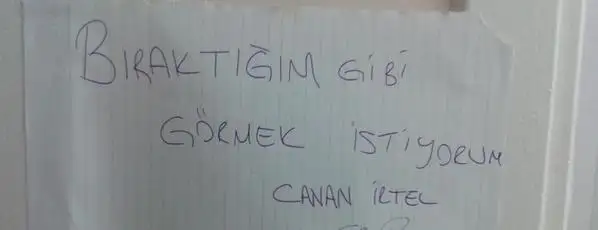 BIRAKTIĞIM GİBİ
GÖRMEK İSTİYORUM
CANAN İRTEL